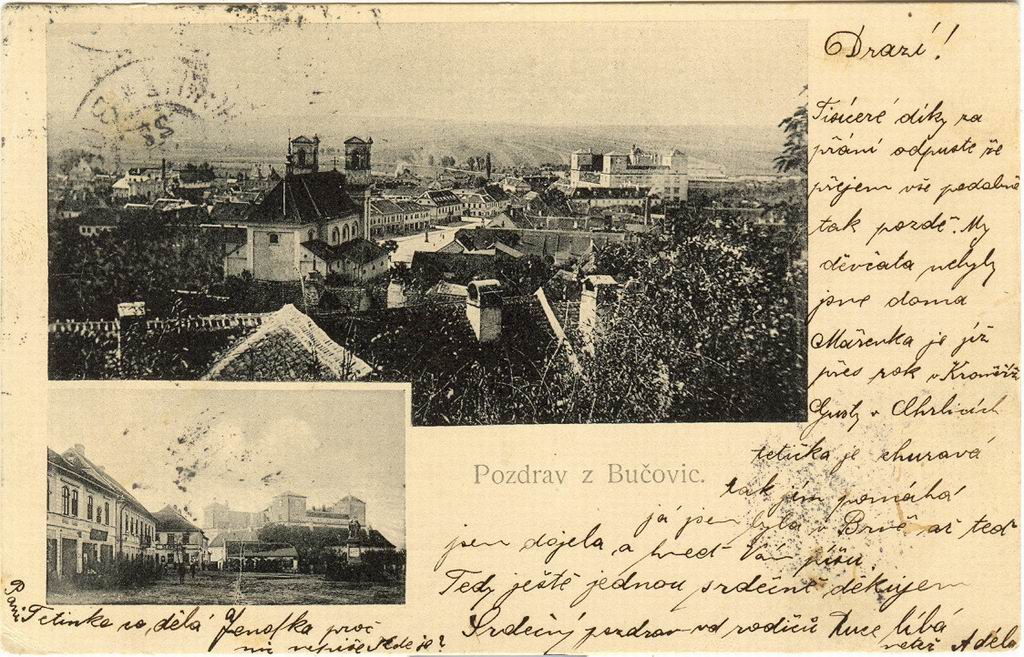 Drazí!
Tisíceré díky za
přání odpusťte že
přejem vše podobně
tak pozdě. My
děvčata nebyly
jsme doma
Mařenka je již
přes rok v Kroměříž
Gusty v Chrlicích
tetička je churavá
tak jim pomáhá
já jsem byla v Brně až teď
jsem dojela a hned Vám píšu.
Tedy ještě jednou srdečně děkujem
Srdečný pozdrav od rodičů Ruce líbá
neteř Adéla
Pozdrav z Bučovic.
Tetinka co, dělá Jenofka proč
nic nepíše kde je?